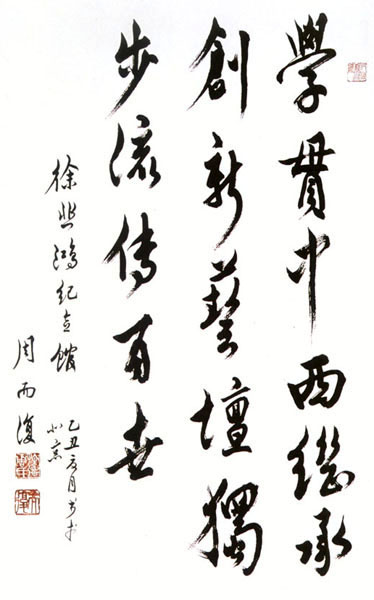 學貫中西繼承
創新藝壇獨
步流傳百世
徐悲鴻紀念館
周而復
乙丑夏月書於
北京